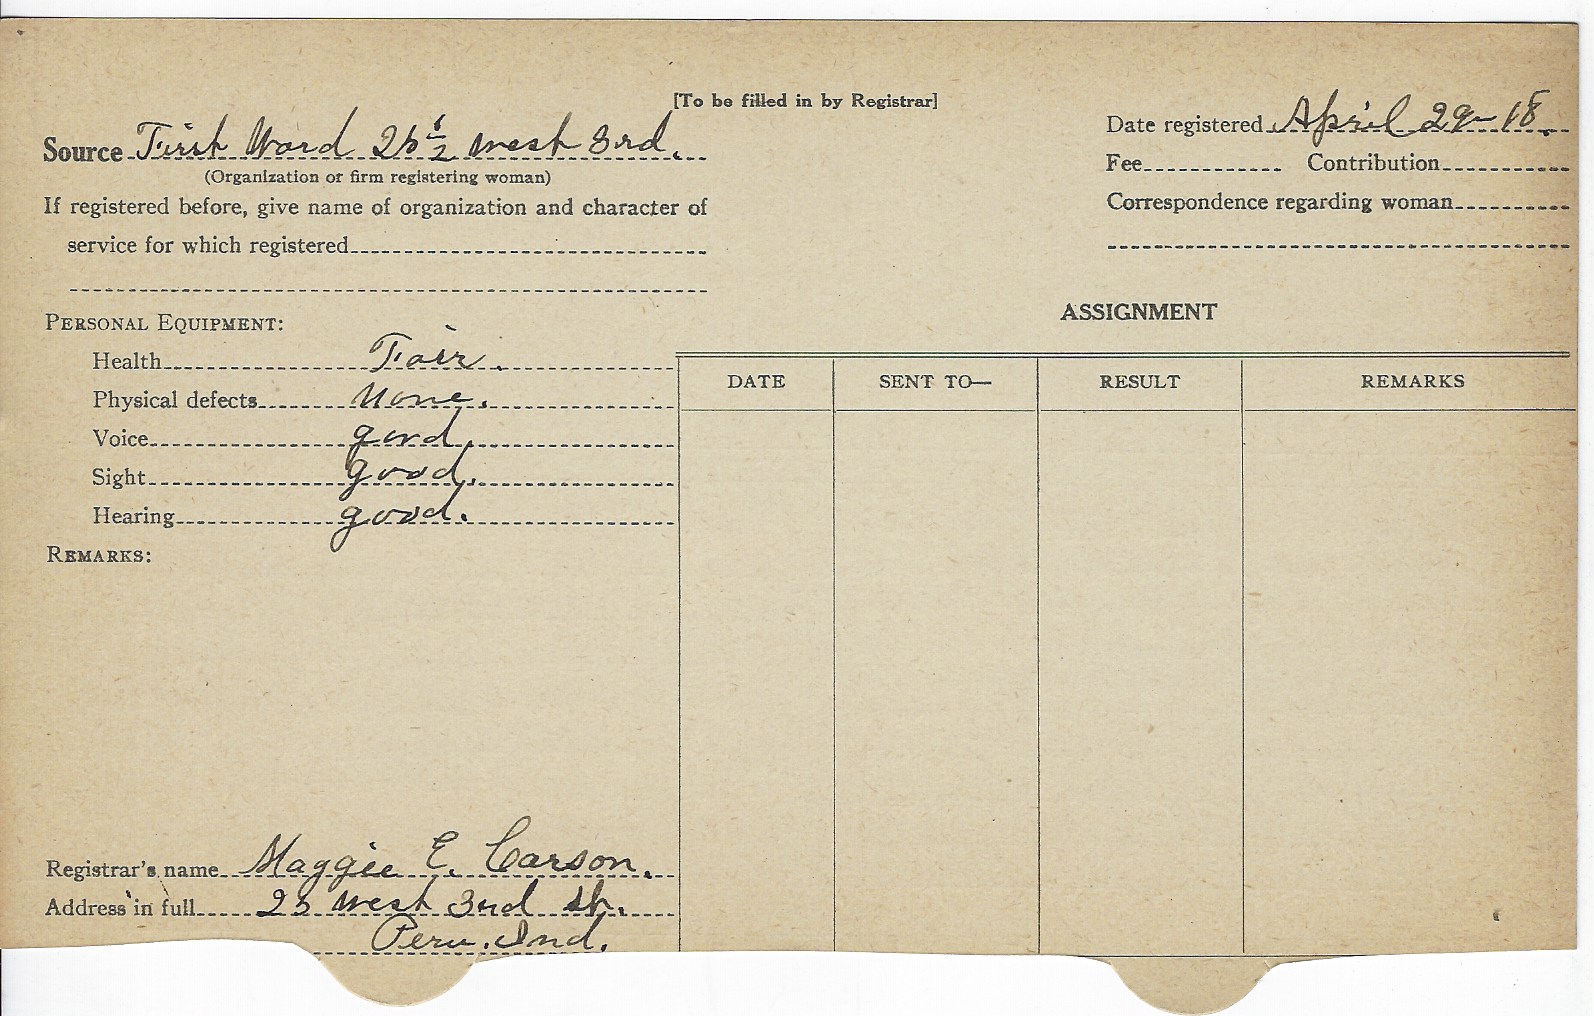 [To be filled in by Registrar]
Source First Ward 25 1/2 West 3rd.
(Organization or firm registering woman)
If registered before, give name of organization and character of
service for which registered
Date registered April 29-18.
Fee Contribution
Correspondence regarding woman
PERSONAL EQUIPMENT:
Health Fair.
Physical defects None.
Voice good.
Sight good.
Hearing good.
REMARKS:
ASSIGNMENT
DATE SENT TO— RESULT REMARKS
Registrar's name Maggie E. Carson.
Address in full West 3rd St.
Peru, Ind.